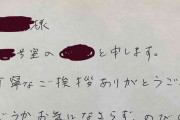 様
号室の と申します。
寧なご挨拶ありがとうご
うかお気になさらず、のびの